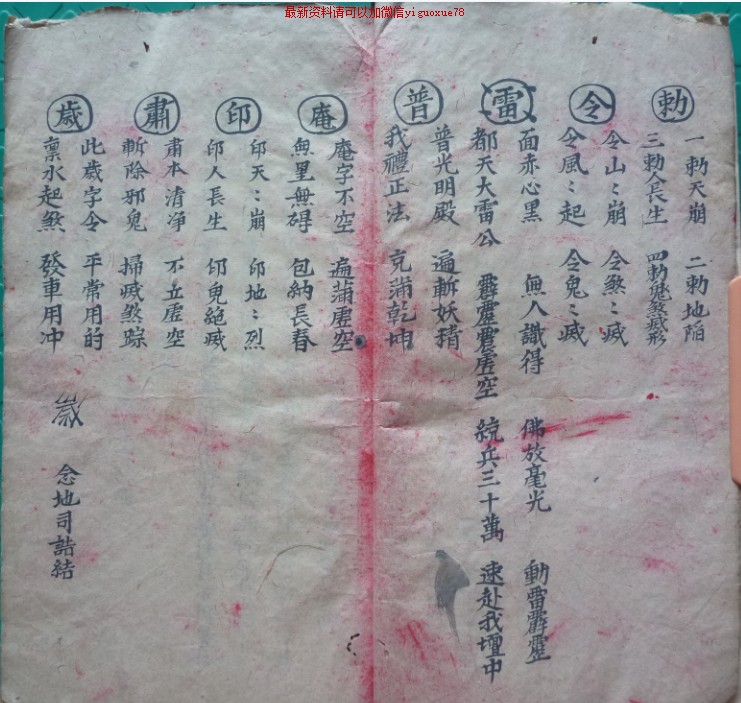 最新资料请可以加微信yiguoxue78
勅
一勅天崩 二勅地陷
三勅人長生 四勅鬼煞滅形
令
令山〻崩 令煞〻滅
令風〻起 令鬼〻滅
雷
面赤心黑 無人識得 佛放毫光 動雷霹靂
都天大雷公 霹靂震虛空 統兵三十萬 速赴我壇中
普
普光明殿 遍斬妖精
我禮正法 充滿乾坤
庵
庵字不空 遍滿虛空
無里無碍 包納長春
印
印天〻崩 印地〻烈
印人長生 印鬼絕滅
肅
肅本清净 不立虛空
斬除邪鬼 掃滅煞踪
歲
此歲字令 平常用的
稟水起煞 發車用冲 歲 念地司誥結